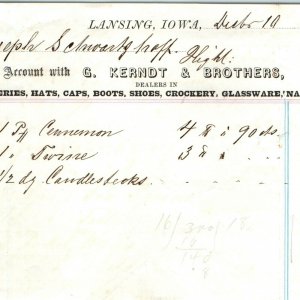 LANSING, IOWA, Decbr 10
seph Schwartzhoff
Account with G. KERNDT & BROTHERS,
DEALERS IN
ERIES, HATS, CAPS, BOOTS, SHOES, CROCKERY, GLASSWARE, NA
1 Pff Cennemon 4 lb à 90cts.
1 " Twine 3 lb "
1/2 dz Candlesticks